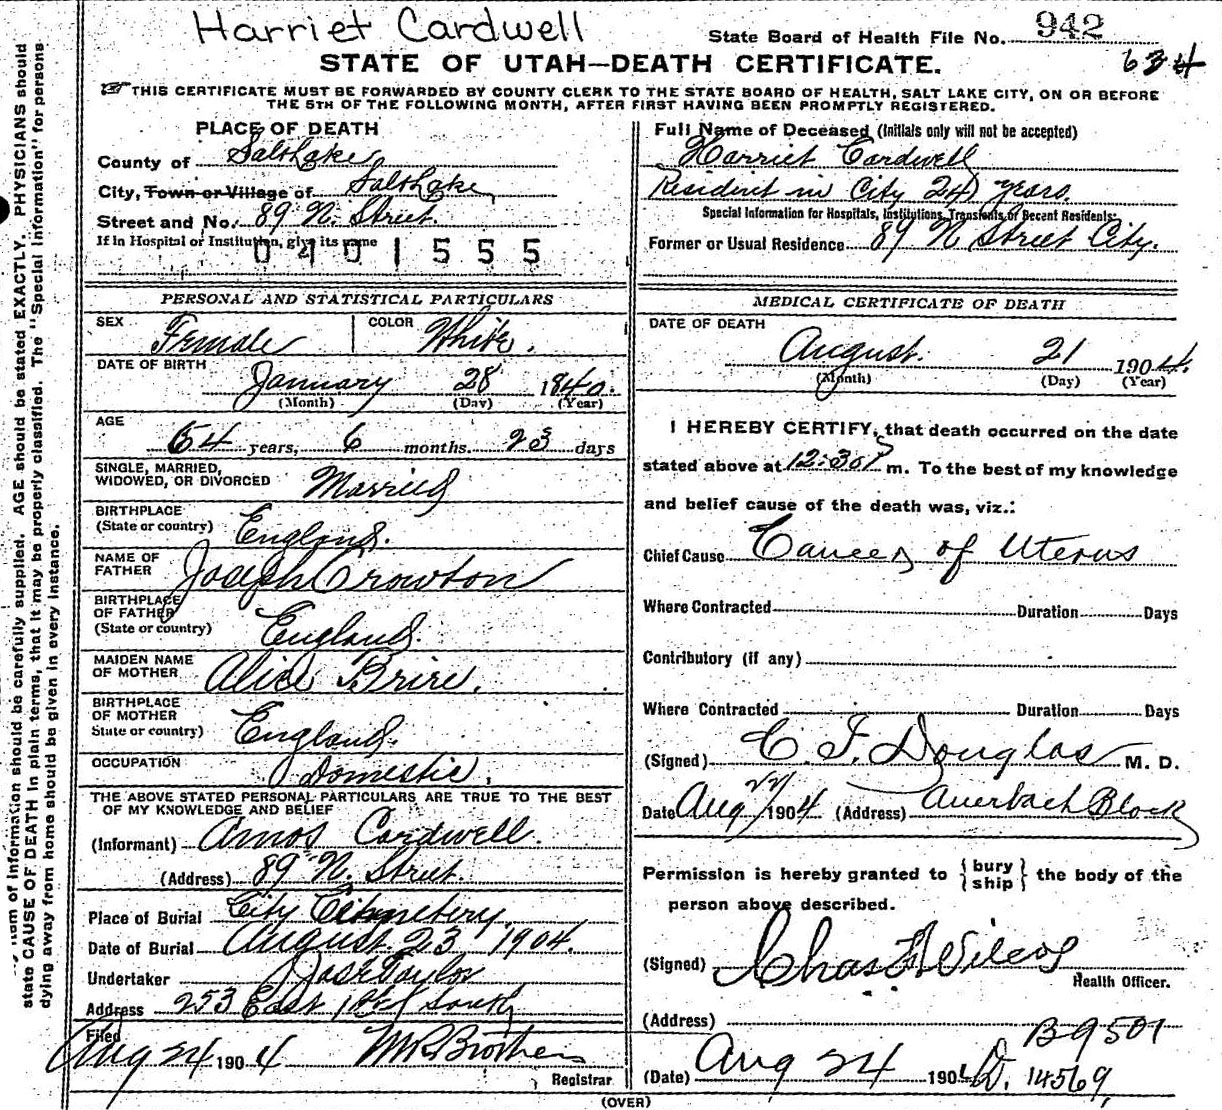 Harriet Cardwell
State Board of Health File No. 942
634
STATE OF UTAH—DEATH CERTIFICATE.
THIS CERTIFICATE MUST BE FORWARDED BY COUNTY CLERK TO THE STATE BOARD OF HEALTH, SALT LAKE CITY, ON OR BEFORE
THE 5TH OF THE FOLLOWING MONTH, AFTER FIRST HAVING BEEN PROMPTLY REGISTERED.
PLACE OF DEATH
County of Salt Lake
City, Town or Village of Salt Lake
Street and No. 89 N. Street.
If in Hospital or Institution, give its name
0401555
PERSONAL AND STATISTICAL PARTICULARS
SEX Female COLOR White.
DATE OF BIRTH
January 28 1840.
(Month) (Day) (Year)
AGE
64 years, 6 months. 23 days
SINGLE, MARRIED,
WIDOWED, OR DIVORCED Married
BIRTHPLACE
(State or country) England.
NAME OF
FATHER Joseph Crowton
BIRTHPLACE
OF FATHER
(State or country) England.
MAIDEN NAME
OF MOTHER Alice
BIRTHPLACE
OF MOTHER
State or country) England.
OCCUPATION Domestic.
THE ABOVE STATED PERSONAL PARTICULARS ARE TRUE TO THE BEST
OF MY KNOWLEDGE AND BELIEF
(Informant) Amos Cardwell.
(Address) 89 N. Street.
Place of Burial City Cemetery
Date of Burial August 23 1904.
Undertaker Taylor
Address 253 East 1st South
Filed
Aug 24 1904 Brothers
Registrar
Full Name of Deceased (Initials only will not be accepted)
Harriet Cardwell
Resident in City 24 years.
Special Information for Hospitals, Institutions, Transients or Recent Residents.
Former or Usual Residence 89 N Street City.
MEDICAL CERTIFICATE OF DEATH
DATE OF DEATH
August. 21 1904.
(Month) (Day) (Year)
I HEREBY CERTIFY, that death occurred on the date
stated above at 12:30 P m. To the best of my knowledge
and belief cause of the death was, viz.:
Chief Cause Cancer of Uterus
Where Contracted Duration Days
Contributory (if any)
Where Contracted Duration Days
(Signed) C. F. Douglas M. D.
Date Aug 22/ 1904 (Address) Auerbach Block
Permission is hereby granted to { bury
ship } the body of the
person above described.
(Signed) Chas F. Wilcox
Health Officer.
(Address)
B 9501
(Date) Aug 24 1904 D. 14569
(OVER)
item of information should be carefully supplied. AGE should be stated EXACTLY. PHYSICIANS should
state CAUSE OF DEATH in plain terms, that it may be properly classified. The "Special Information" for persons
dying away from home should be given in every instance.